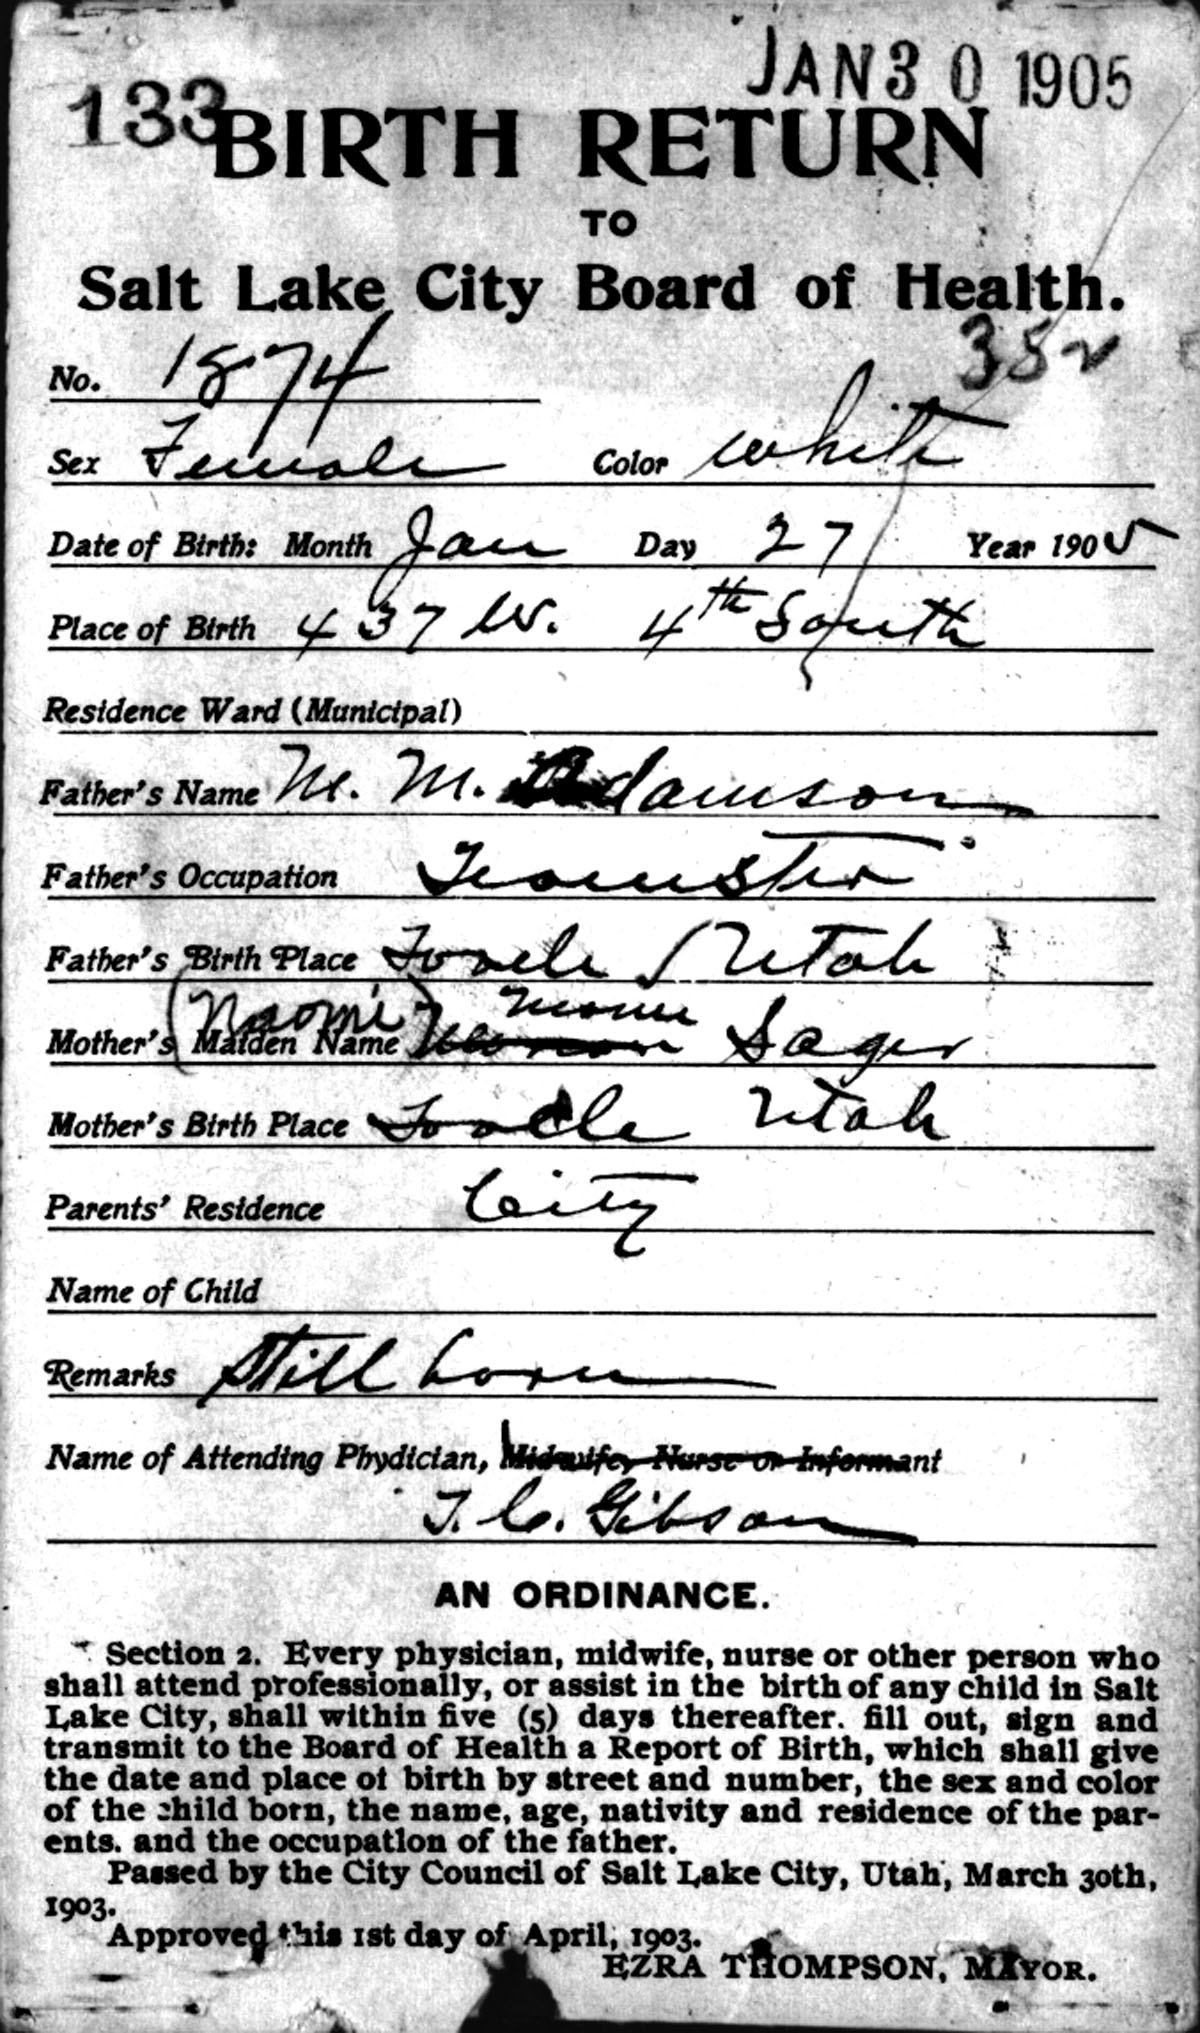 JAN 30 1905
133
BIRTH RETURN
TO
Salt Lake City Board of Health.
352
No. 1874
Sex Female Color White
Date of Birth: Month Jan Day 27 Year 1905
Place of Birth 437 W. 4th South
Residence Ward (Municipal)
Father's Name M. M. Adamson
Father's Occupation Teamster
Father's Birth Place Tooele Utah
Mother's Maiden Name (Naomi) Sager
Mother's Birth Place Tooele Utah
Parents' Residence City
Name of Child
Remarks Still born
Name of Attending Phydician, Midwife, Nurse or Informant
T. C. Gibson
AN ORDINANCE.
Section 2. Every physician, midwife, nurse or other person who
shall attend professionally, or assist in the birth of any child in Salt
Lake City, shall within five (5) days thereafter. fill out, sign and
transmit to the Board of Health a Report of Birth, which shall give
the date and place of birth by street and number, the sex and color
of the child born, the name, age, nativity and residence of the par-
ents. and the occupation of the father.
Passed by the City Council of Salt Lake City, Utah, March 30th,
1903.
Approved this 1st day of April, 1903.
EZRA THOMPSON, MAYOR.